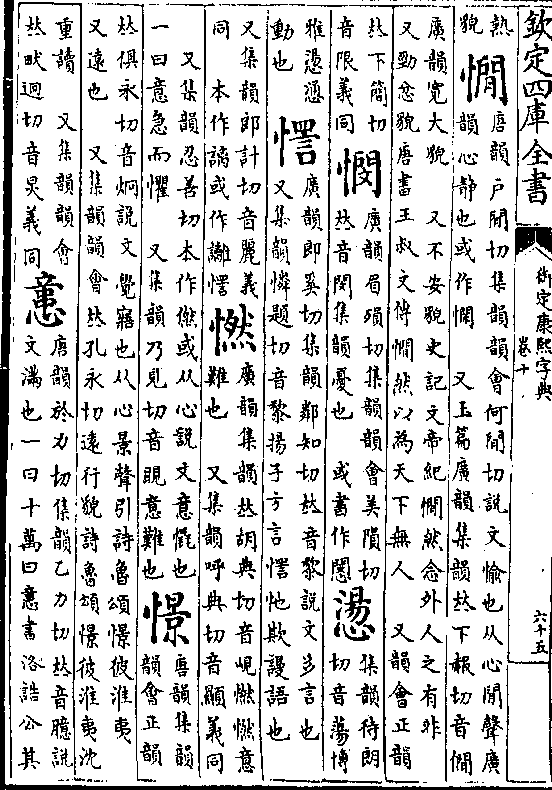 欽定四庫全書
御定康熙字典
卷十
六十五
熟
貌
憪
唐韻戶閒切集韻韻會何閒切說文愉也从心閒聲廣
韻心靜也或作憪 又玉篇廣韻集韻𠀤下赧切音僩
廣韻寬大貌 又不安貌史記文帝紀憪然念外人之有非
又勁忿貌唐書王叔文傳憪然以為天下無人 又韻會正韻
𠀤下簡切
音限義同
憫
廣韻眉殞切集韻韻會美隕切
𠀤音閔集韻憂也 或書作
集韻待朗
切音蕩博
雅
動也
㦒
廣韻即奚切集韻鄰知切𠀤音黎說文多言也
又集韻憐題切音黎揚子方言㦒忚欺謾語也
又集韻郎計切音麗義
同 本作謧或作讈㦒
㦓
廣韻集韻𠀤胡典切音峴㦓㦓意
難也 又集韻呼典切音顯義同
又集韻忍善切本作㒄或从心說文意也
一曰意急而懼 又集韻乃見切音晛意難也
憬
唐韻集韻
韻會正韻
𠀤俱永切音炯說文覺寤也从心景聲引詩魯頌憬彼淮夷
又遠也 又集韻韻會𠀤孔永切遠行貌詩魯頌憬彼淮夷沈
重讀 又集韻韻會
𠀤畎迥切音炅義同
𢡃
唐韻於力切集韻乙力切𠀤音臆說
文滿也一曰十萬曰𢡃書洛誥公其